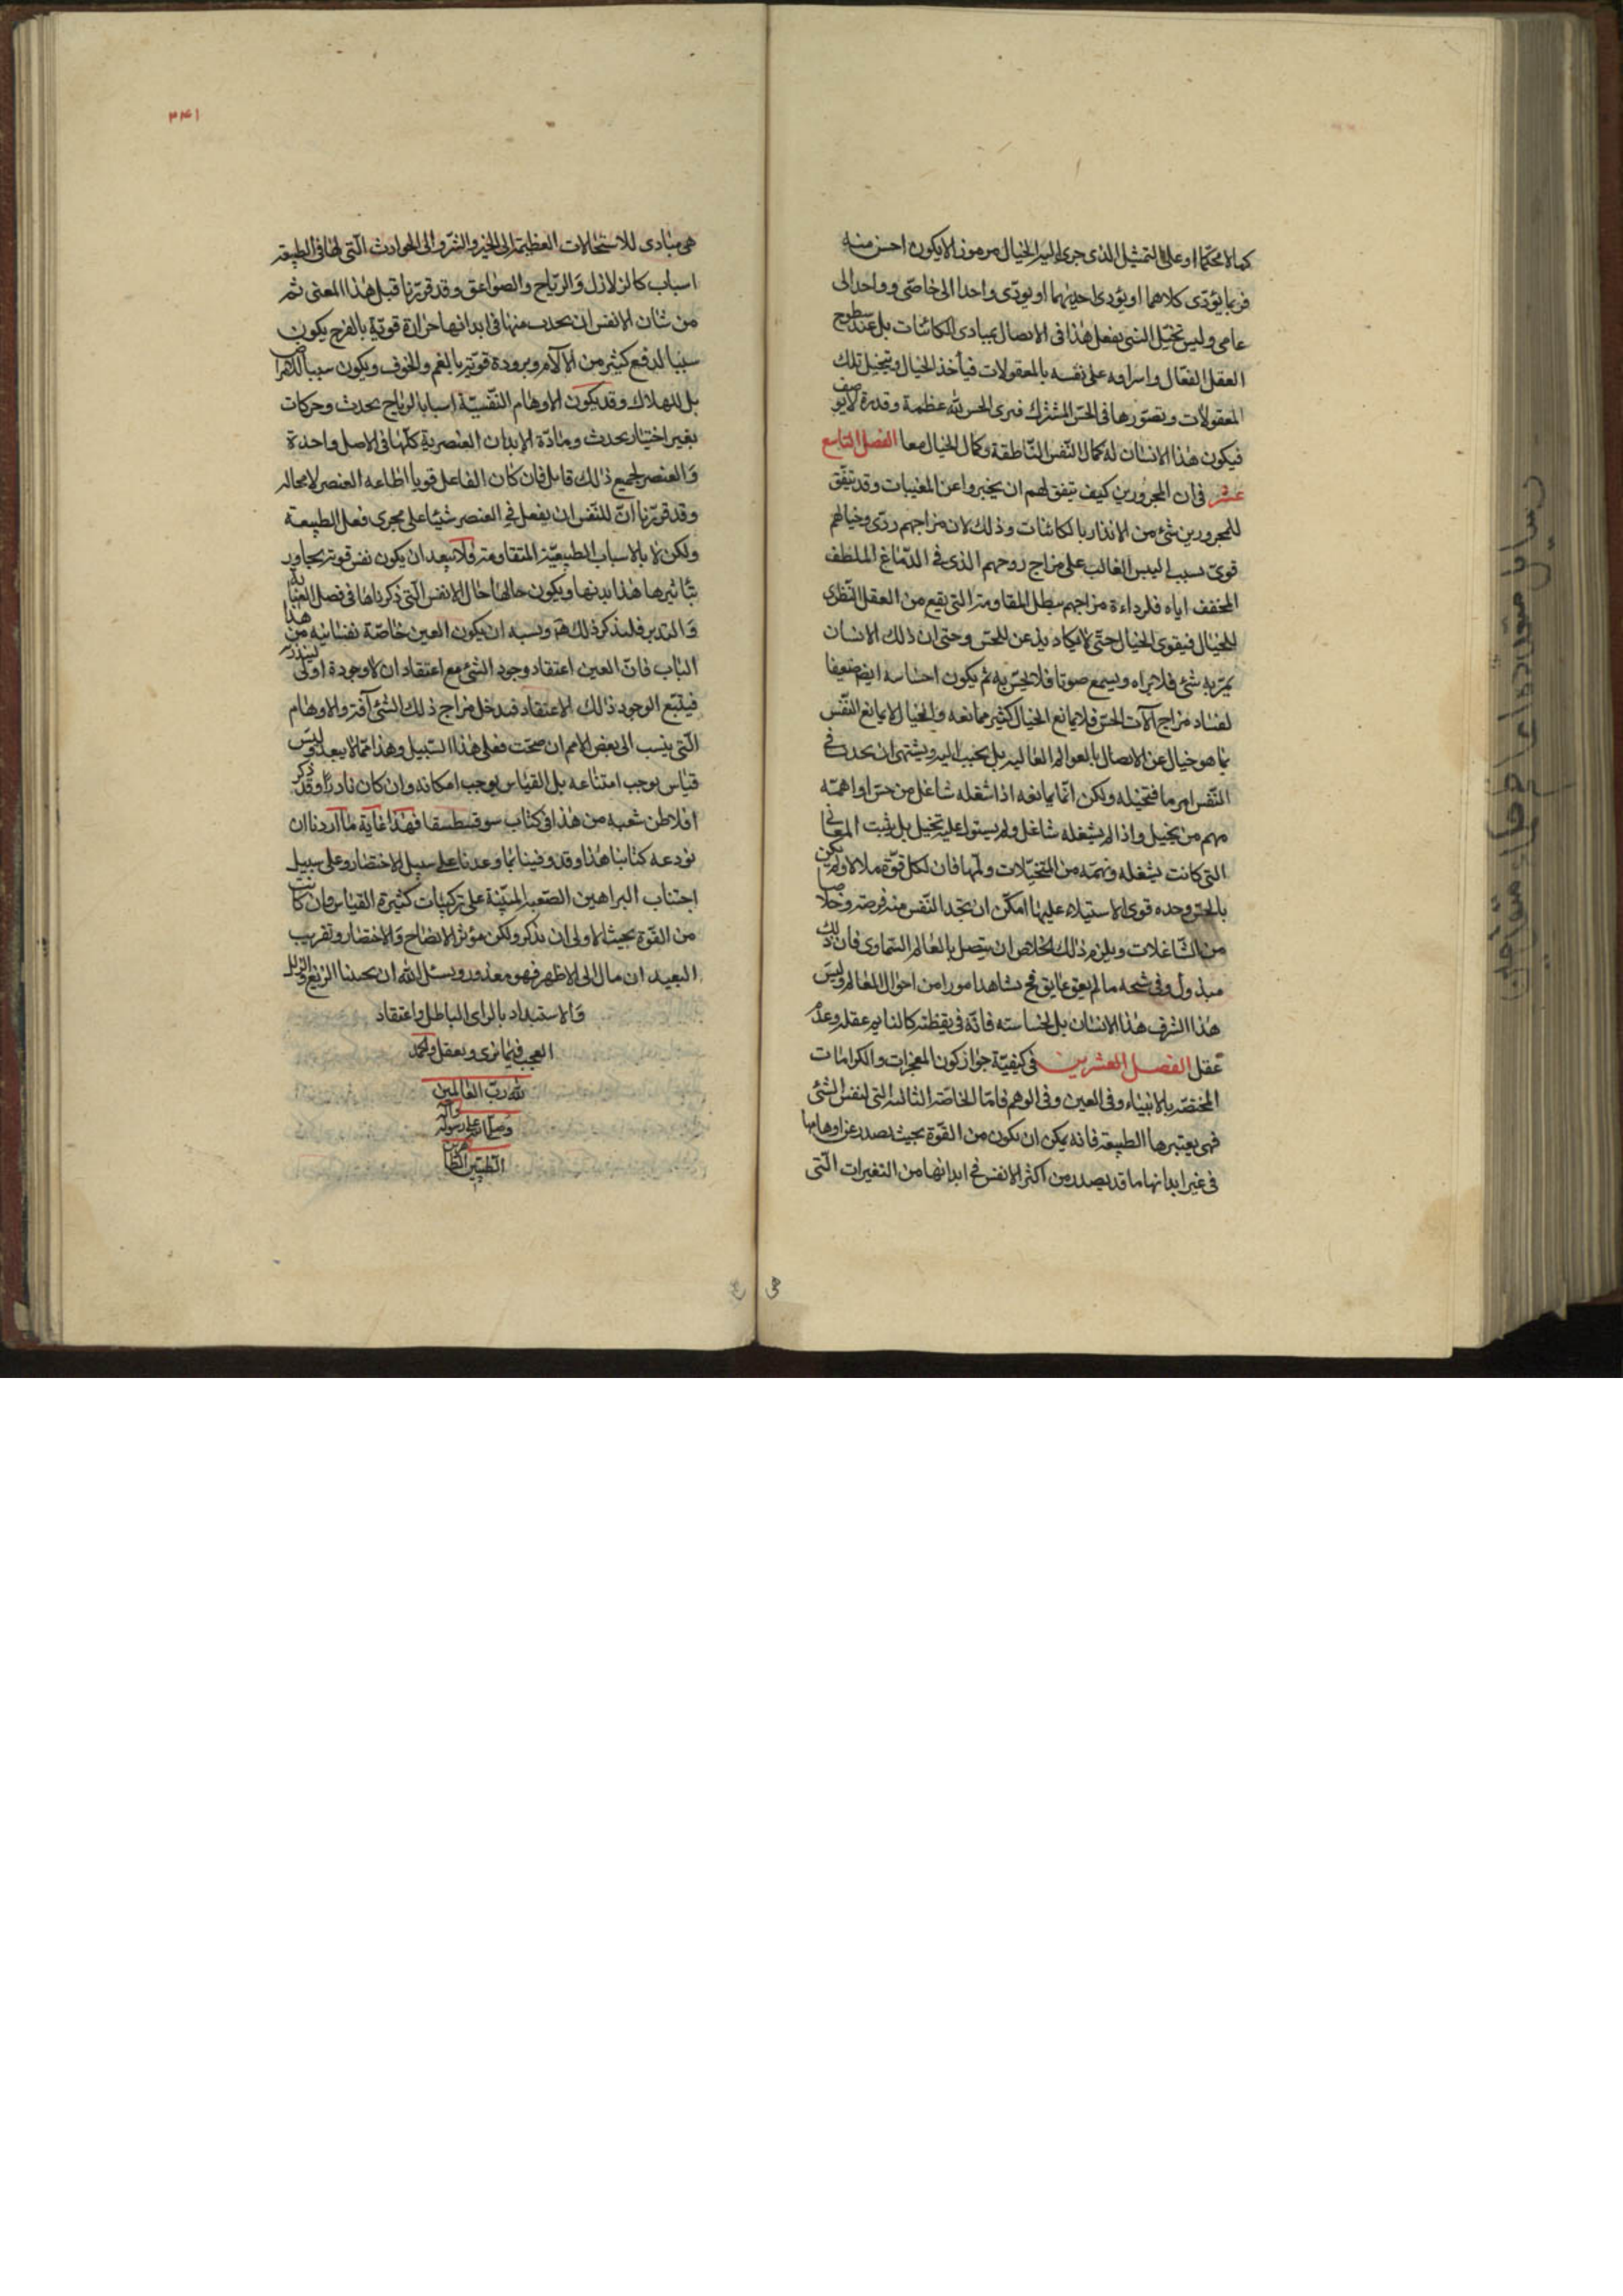 كمالا محكما او على التمثيل الذى جرى اليه الخيال مرموزا لا يكون احسن منه
فربما يؤدى كلاهما او يؤدى احديهما او يودى واحدا الى خاصى وواحدا الى
عامى وليس تخيل النبى يفعل هذا فى الاتصال بمبادى الكائنات بل عند سطوح
العقل الفعال واشراقه على نفسه بالمعقولات فيأخذ الخيال ويتخيل تلك
المعقولات ويصورها فى الحس المشترك فيرى الحس لله عظمة وقدرة لا يوصف
فيكون هذا الانسان له كمال النفس الناطقة وكمال الخيال معا الفصل التاسع
عشر فى ان المجرورين كيف يتفق لهم ان يخبروا عن المغيبات وقد يتفق
للمجرورين شئ من الانذار بالكائنات وذلك لان مزاجهم ردى وخيالهم
قوى بسبب اليبس الغالب على مزاج روحهم الذى فى الدماغ الملطف
المجفف اياه فلرداءة مزاجهم يبطل المقاومة التى يقع من العقل النظرى
للخيال فيقوى الخيال حتى لا يكاد يذعن للحس وحتى ان ذلك الانسان
يمر به شئ فلا يراه ويسمع صوتا فلا يحس به ثم يكون احساسه ايضا ضعيفا
لفساد مزاج آلات الحس فلا يمانع الخيال كثير ممانعه والخيال لا يمانع النفس
بما هو خيال عن الاتصال بالعوالم العاليه بل يجيب اليه ويشتهى ان يحدث فى
النفس امر ما فتخيله ولكن انما يمانعه اذا شغله شاغل من حس او اهمته
مهم من تخيل واذا لم يشغله شاغل ولم يستول عليه تخيل بل ثبت المعانى
التى كانت يشغله وتهمه من التخيلات ولها فان لكل قوة ملالا ولم يكن
بالحس وحده قوى الاستيلاء عليها امكن ان يجد النفس منه فرصة وخلاصا
من الشاغلات ويلزم ذلك الخلاص ان يتصل بالعالم السماوى فان ذلك
مبذول وفى شحه ما لم يعق عايق فح يشاهد امورا من احوال العالم وليس
هذا الشرف هذا الانسان بل لخساسته فانه فى يقظته كالنايم عقله وعدم
عقل الفصل العشرين فى كيفية جواز كون المعجزات والكرامات
المختصة بالانبياء وفى العين وفى الوهم فاما الخاصة الثالثة التى لنفس النبى
فهى يعتبرها الطبيعة فانه يمكن ان يكون من القوة بحيث يصدر عن اوهامها
فى غير ابدانها ما قد يصدر من اكثر الانفس فى ابدانها من التغيرات التى
٣٤١
هى مبادى للاستحالات العظيمة الى الخير والشر والى الحوادث التى لها فى الطبيعة
اسباب كالزلازل والرياح والصواعق وقد قررنا قبل هذا المعنى ثم
من شان الانفس ان يحدث منها فى ابدانها حرارة قوية بالفرح يكون
سببا لدفع كثير من الآلام وبرودة قوية بالغم والخوف ويكون سببا لامراض
بل للهلاك وقد يكون الاوهام النفسية اسبابا لرياح يحدث وحركات
بغير اختيار يحدث ومادة الابدان العنصرية كلها فى الاصل واحدة
والعنصر لجميع ذلك قابل فان كان الفاعل قويا اطاعه العنصر لا محاله
وقد قررنا ان للنفس ان يفعل فى العنصر شيئا على مجرى فعل الطبيعة
ولكن لا بالاسباب الطبيعية المتقاومة ولا يبعد ان يكون نفس قوية يجاوز
بتاثيرها هذا بدنها ويكون حالها حال الانفس التى ذكرناها فى فصل العناية
والتدبير فليتذكر ذلك هم ويشبه ان يكون العين خاصة نفسانيه من هذا
الباب فان العين اعتقاد وجود الشئ مع اعتقاد ان لا وجوده اولى
فيتبع الوجود ذلك الاعتقاد فيدخل مزاج ذلك الشئ آفة والاوهام
التى ينسب الى بعض الامم ان صحت فعلى هذا السبيل وهذا مما لا يبعد وليس
قياس يوجب امتناعه بل القياس يوجب امكانه وان كان نادرا وقد ذكر
افلاطن شعبه من هذا فى كتاب سوفسطسقا فهذا غاية ما اردنا ان
نودعه كتابنا هذا وقد وفينا بما وعدنا على سبيل الاختصار وعلى سبيل
اجتناب البراهين الصعبه المبنية على تركيبات كثيرة القياس وان كانت
من القوة بحيث الاولى ان يذكر ولكن مؤثر الايضاح والاختصار وتقريب
البعيد ان مال الى الاظهر فهو معذور ويسئل الله ان يجنبنا الزيغ والزلل
والاستبداد بالراى الباطل واعتقاد
العجب فيما نرى ونعقل والحمد
لله رب العالمين
وصلى الله على رسوله وآله
الطيبين الطاهرين